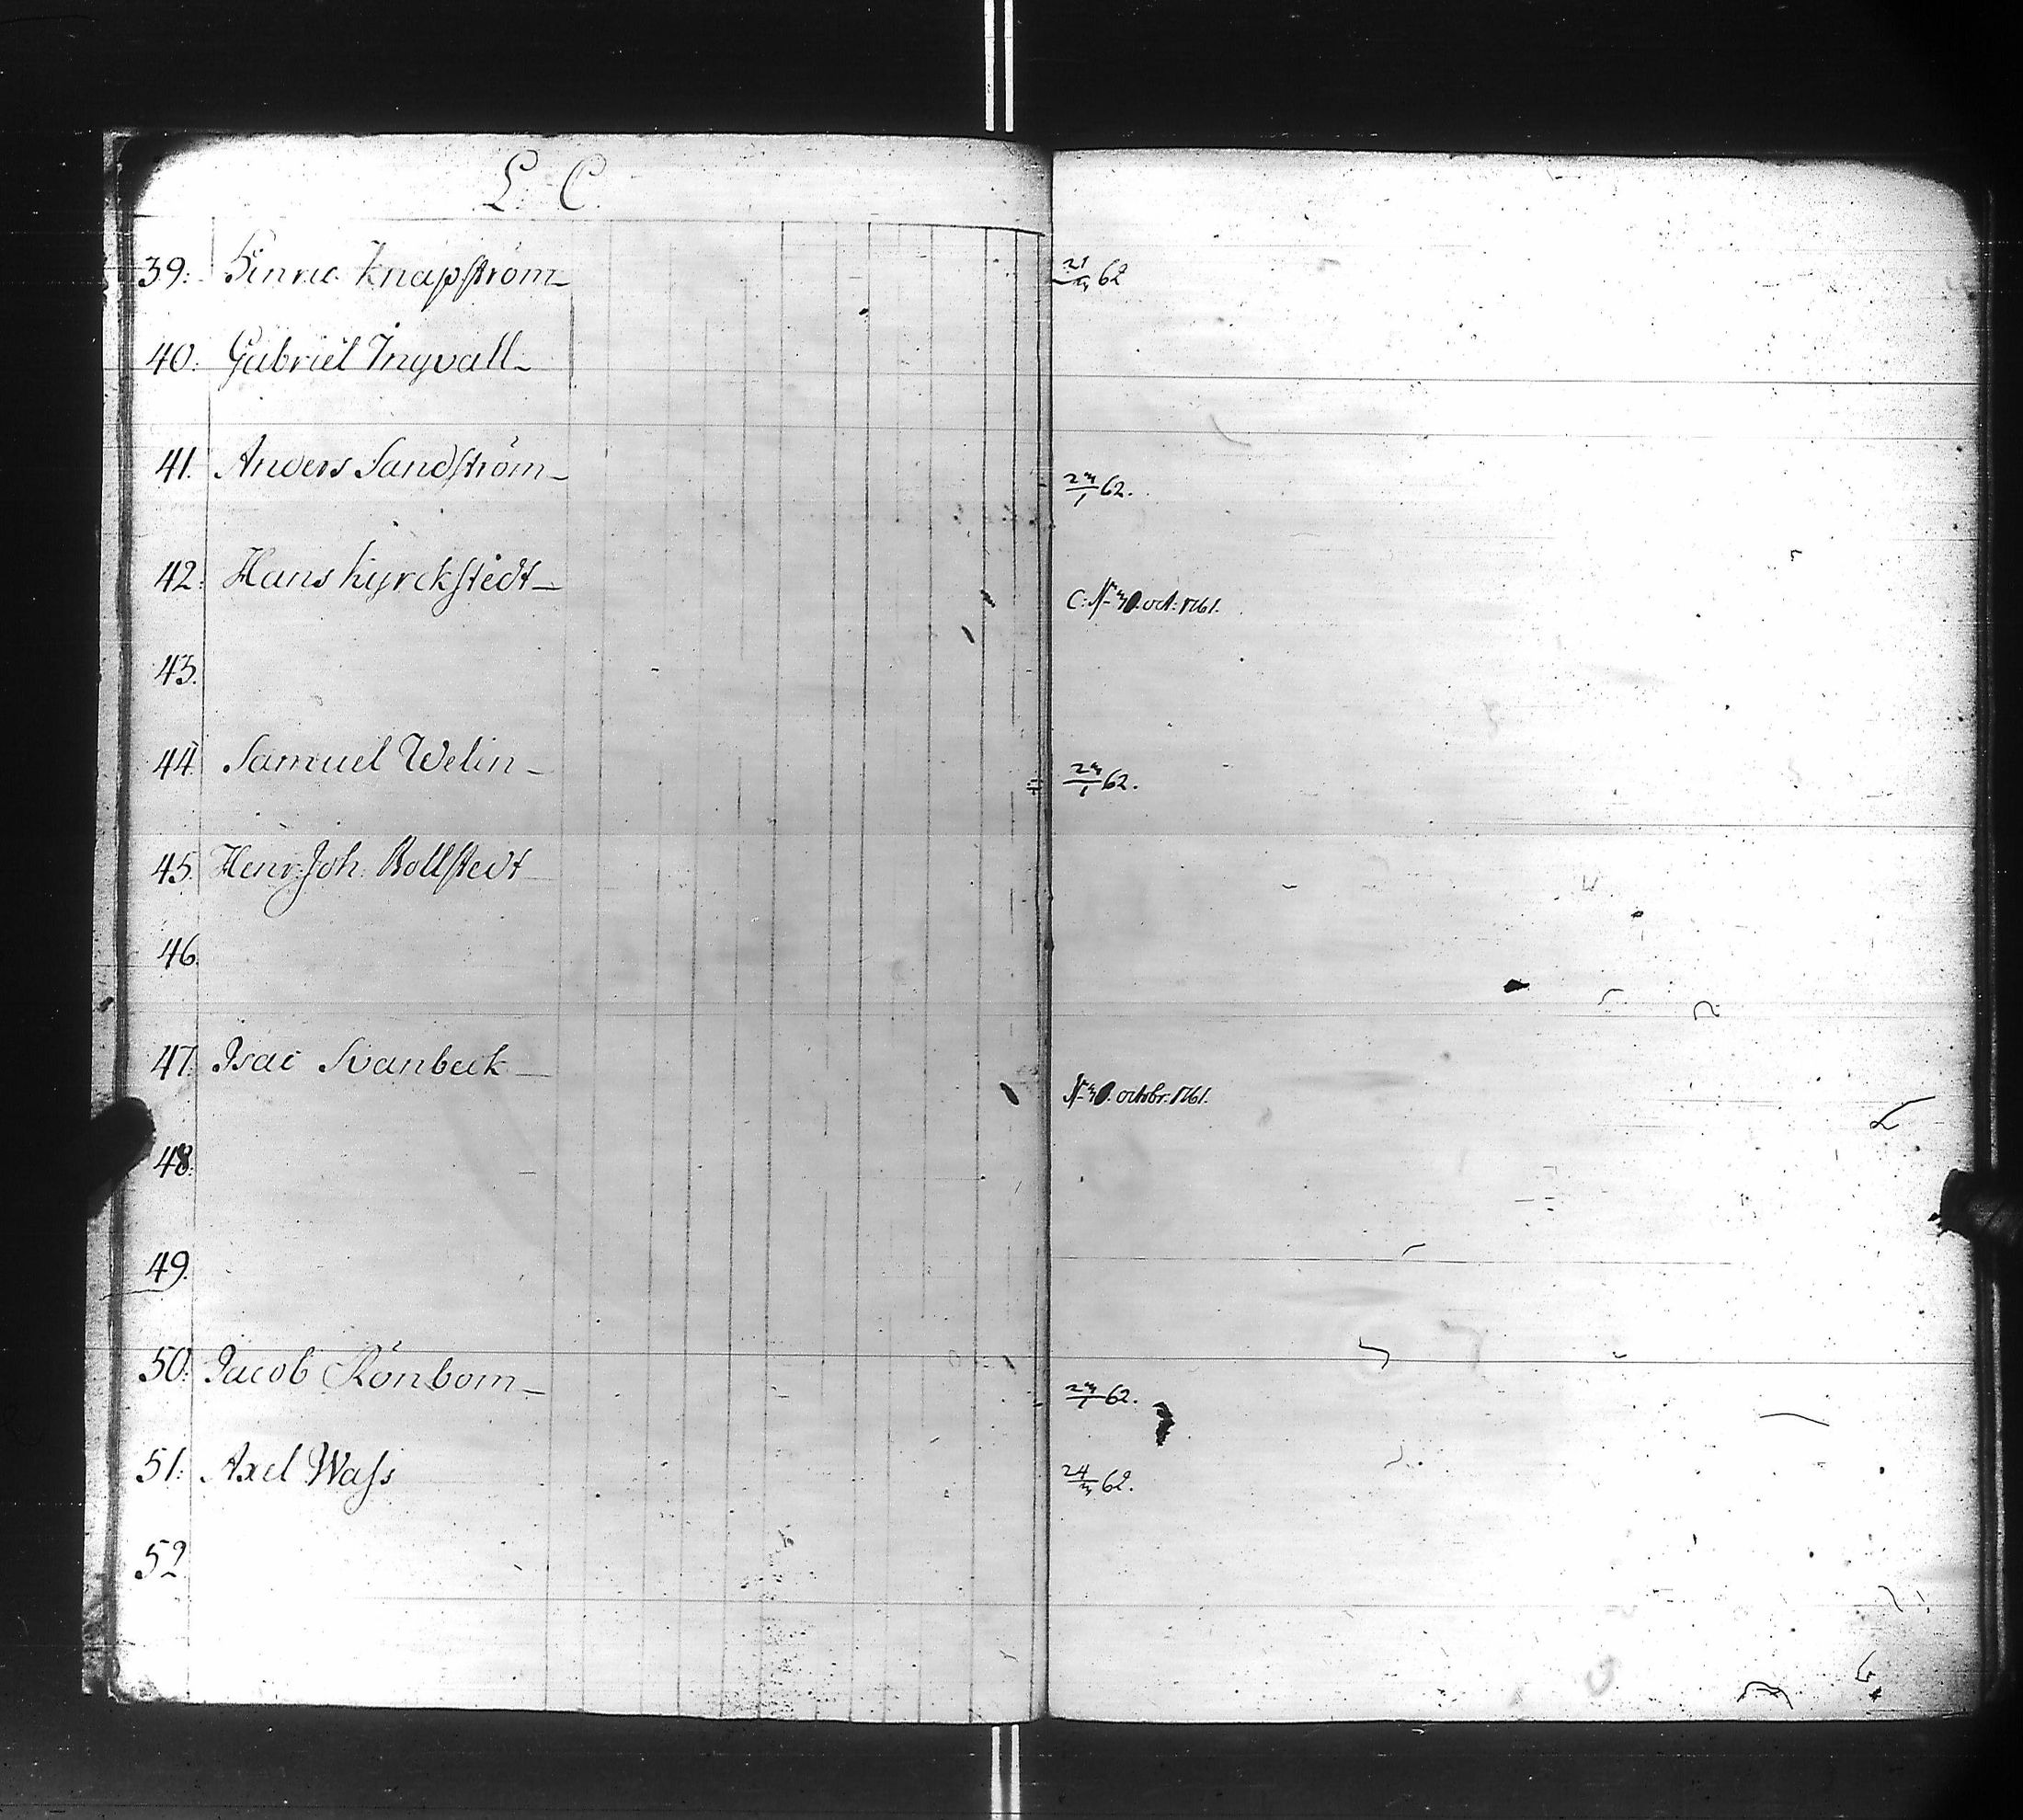 L. C.
39: Hinric Knapström 21/5 62
40: Gabriel Ingvall
41. Anders Sandström 23/1 62.
42: Hans Kyrckstedt C. N. 30. oct: 1761.
43.
44. Samuel Welin 23/1 62.
45. Henr: Joh. Bollstedt
46.
47. Isac Svanbeck N. 30. octobr. 1761.
48.
49.
50: Jacob Rönbom 23/1 62.
51: Axel Wass 24/3 62.
52.